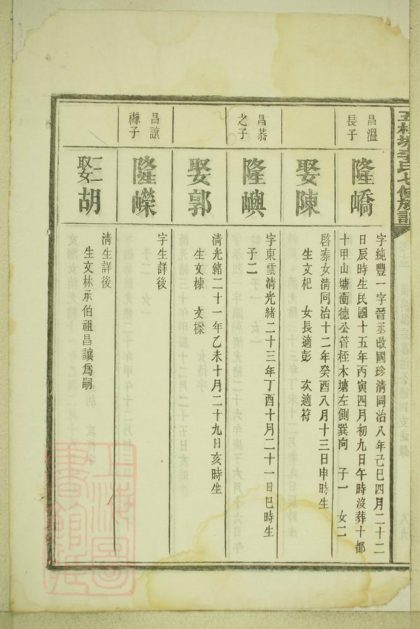 昌溫長子
隆嶠
字純豐一字晉丞啟國珍清同治八年己巳四月二十二
日辰時生民國十五年丙寅四月初九日午時歿葬十都
十甲山塘衝德公菅桎木塘左側巽向 子一 女二
娶陳
啓泰女清同治十二年癸酉八月十三日申時生
生文杞 女長適彭 次適符
昌恭之子
隆嶼
字東雲清光緒二十三年丁酉十月二十一日巳時生
子二
娶郭
清光緒二十一年乙未十月二十九日亥時生
生文棟 文探
昌讓祧子
隆嶸
字生詳後
娶胡
清生詳後
生文林承伯祖昌讓為嗣